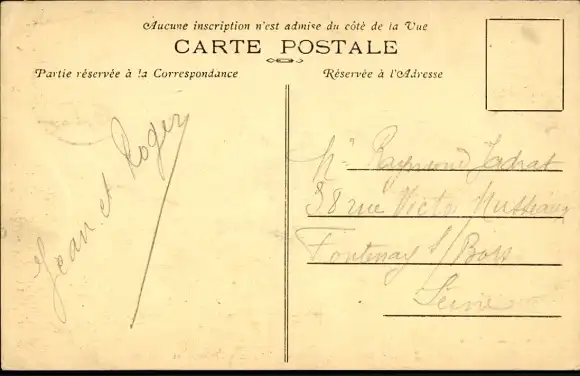 Aucune inscription n'est admise du côté de la Vue
CARTE POSTALE
Partie réservée à la Correspondance
Réservée à l'Adresse
Jean et Roger
Mr Raymond
58 rue Victor
Fontenay s/Bois
Seine